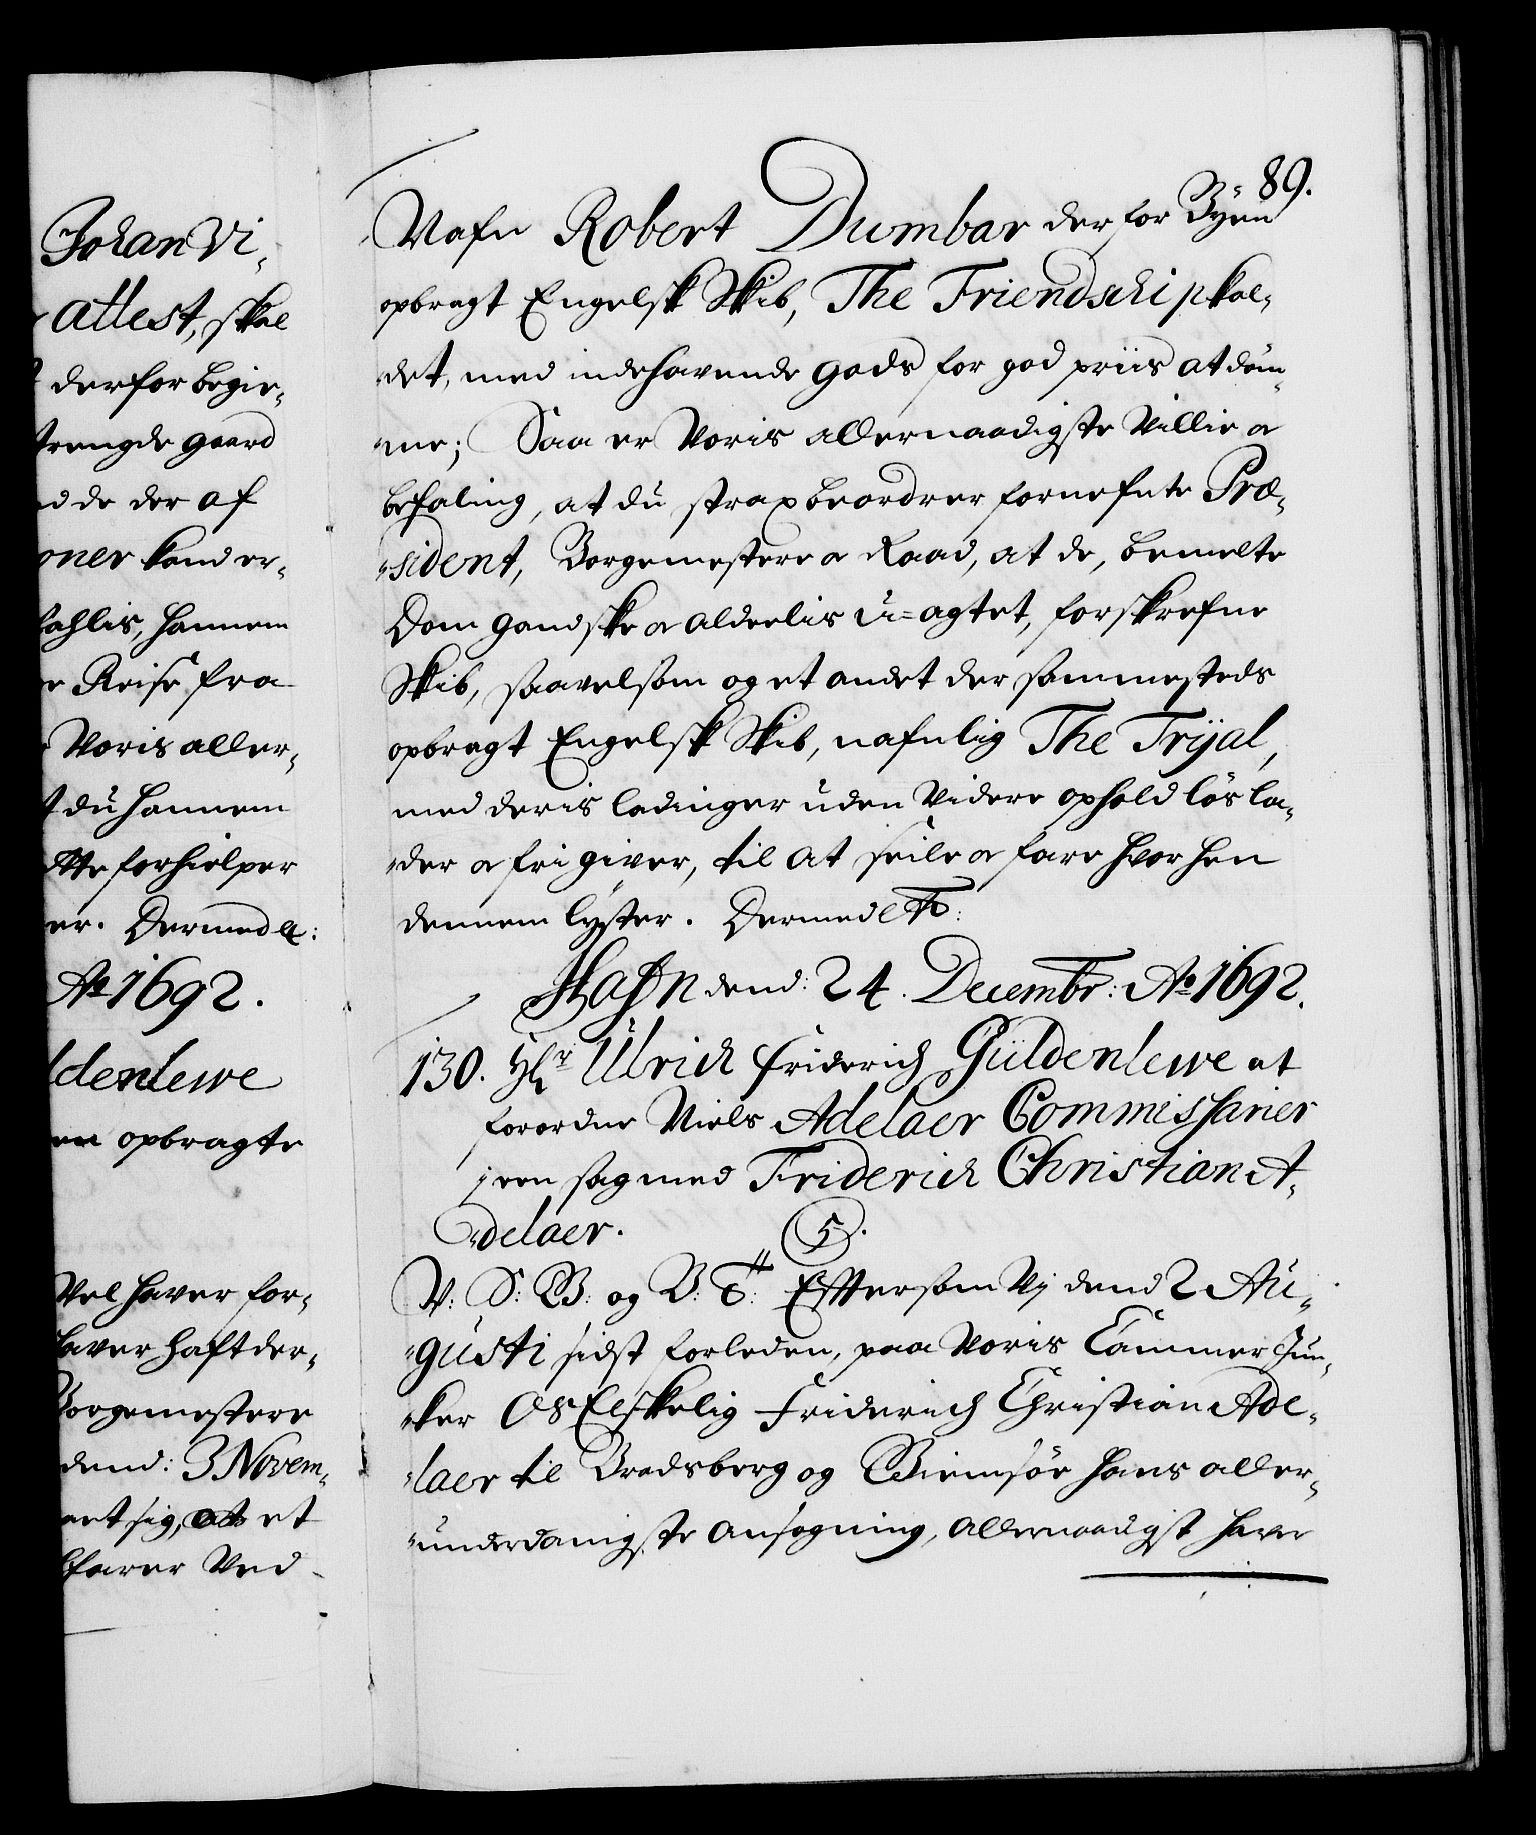 Johan Vi-
attest, skal
derfor begie-
trengde gaard
de der af
oner kand er-
hannem
Reise fra
Voris aller-
du hannem
forhielper
er. Dermed etc:
Ao 1692.
ldenlewe
opbragte
Vel haver for-
haver haft der-
Borgemestere
dend: 3 Novem-
sig, at et
farer Ved
89.
Nafn Robert Dumbar der for Byen
opbragt Engelsk Skib, The Friendschip kal-
det, med indehavende gods for god priis at döm-
me; Saa er Voris allernaadigste Villie oc
befaling, at du strax beordrer fornefnte Præ-
sident, Borgemestere oc Raad, at de, bemelte
Dom gandske oc aldeelis u-agtet, forskrefne
Skib, saavelsom og et andet der sammesteds
opbragt Engelsk Skib, nafnlig The Trÿal,
med deris ladinger uden Videre ophold lös la-
der oc frigiver, til at seile oc fare hvor hen
dennem lyster. Dermed etc:
Hafn dend: 24. Decembr: Ao 1692.
130. Hr Ulrich Friderich Güldenlewe at
forordne Niels Adelaer Commissarier
i een sag med Friderich Christian A-
delaer.
5.
V: S: B: og B: T: Efftersom Vj dend 2 Au-
gusti sidst forleden, paa Voris Cammer Jun-
ker Os Elskelig Friderich Christian Ade-
laer til Bradsberg og Giemsöe hans aller-
underdanigste Ansøgning, Allernaadigst haver